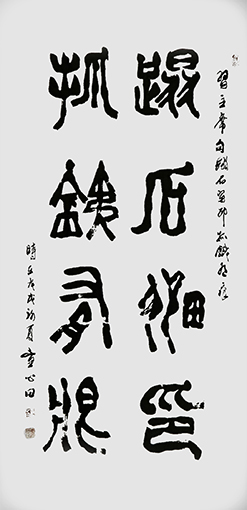 踏石留印
抓銕有痕
習主席句踏石留印抓鐵有痕
時在戊戌初夏